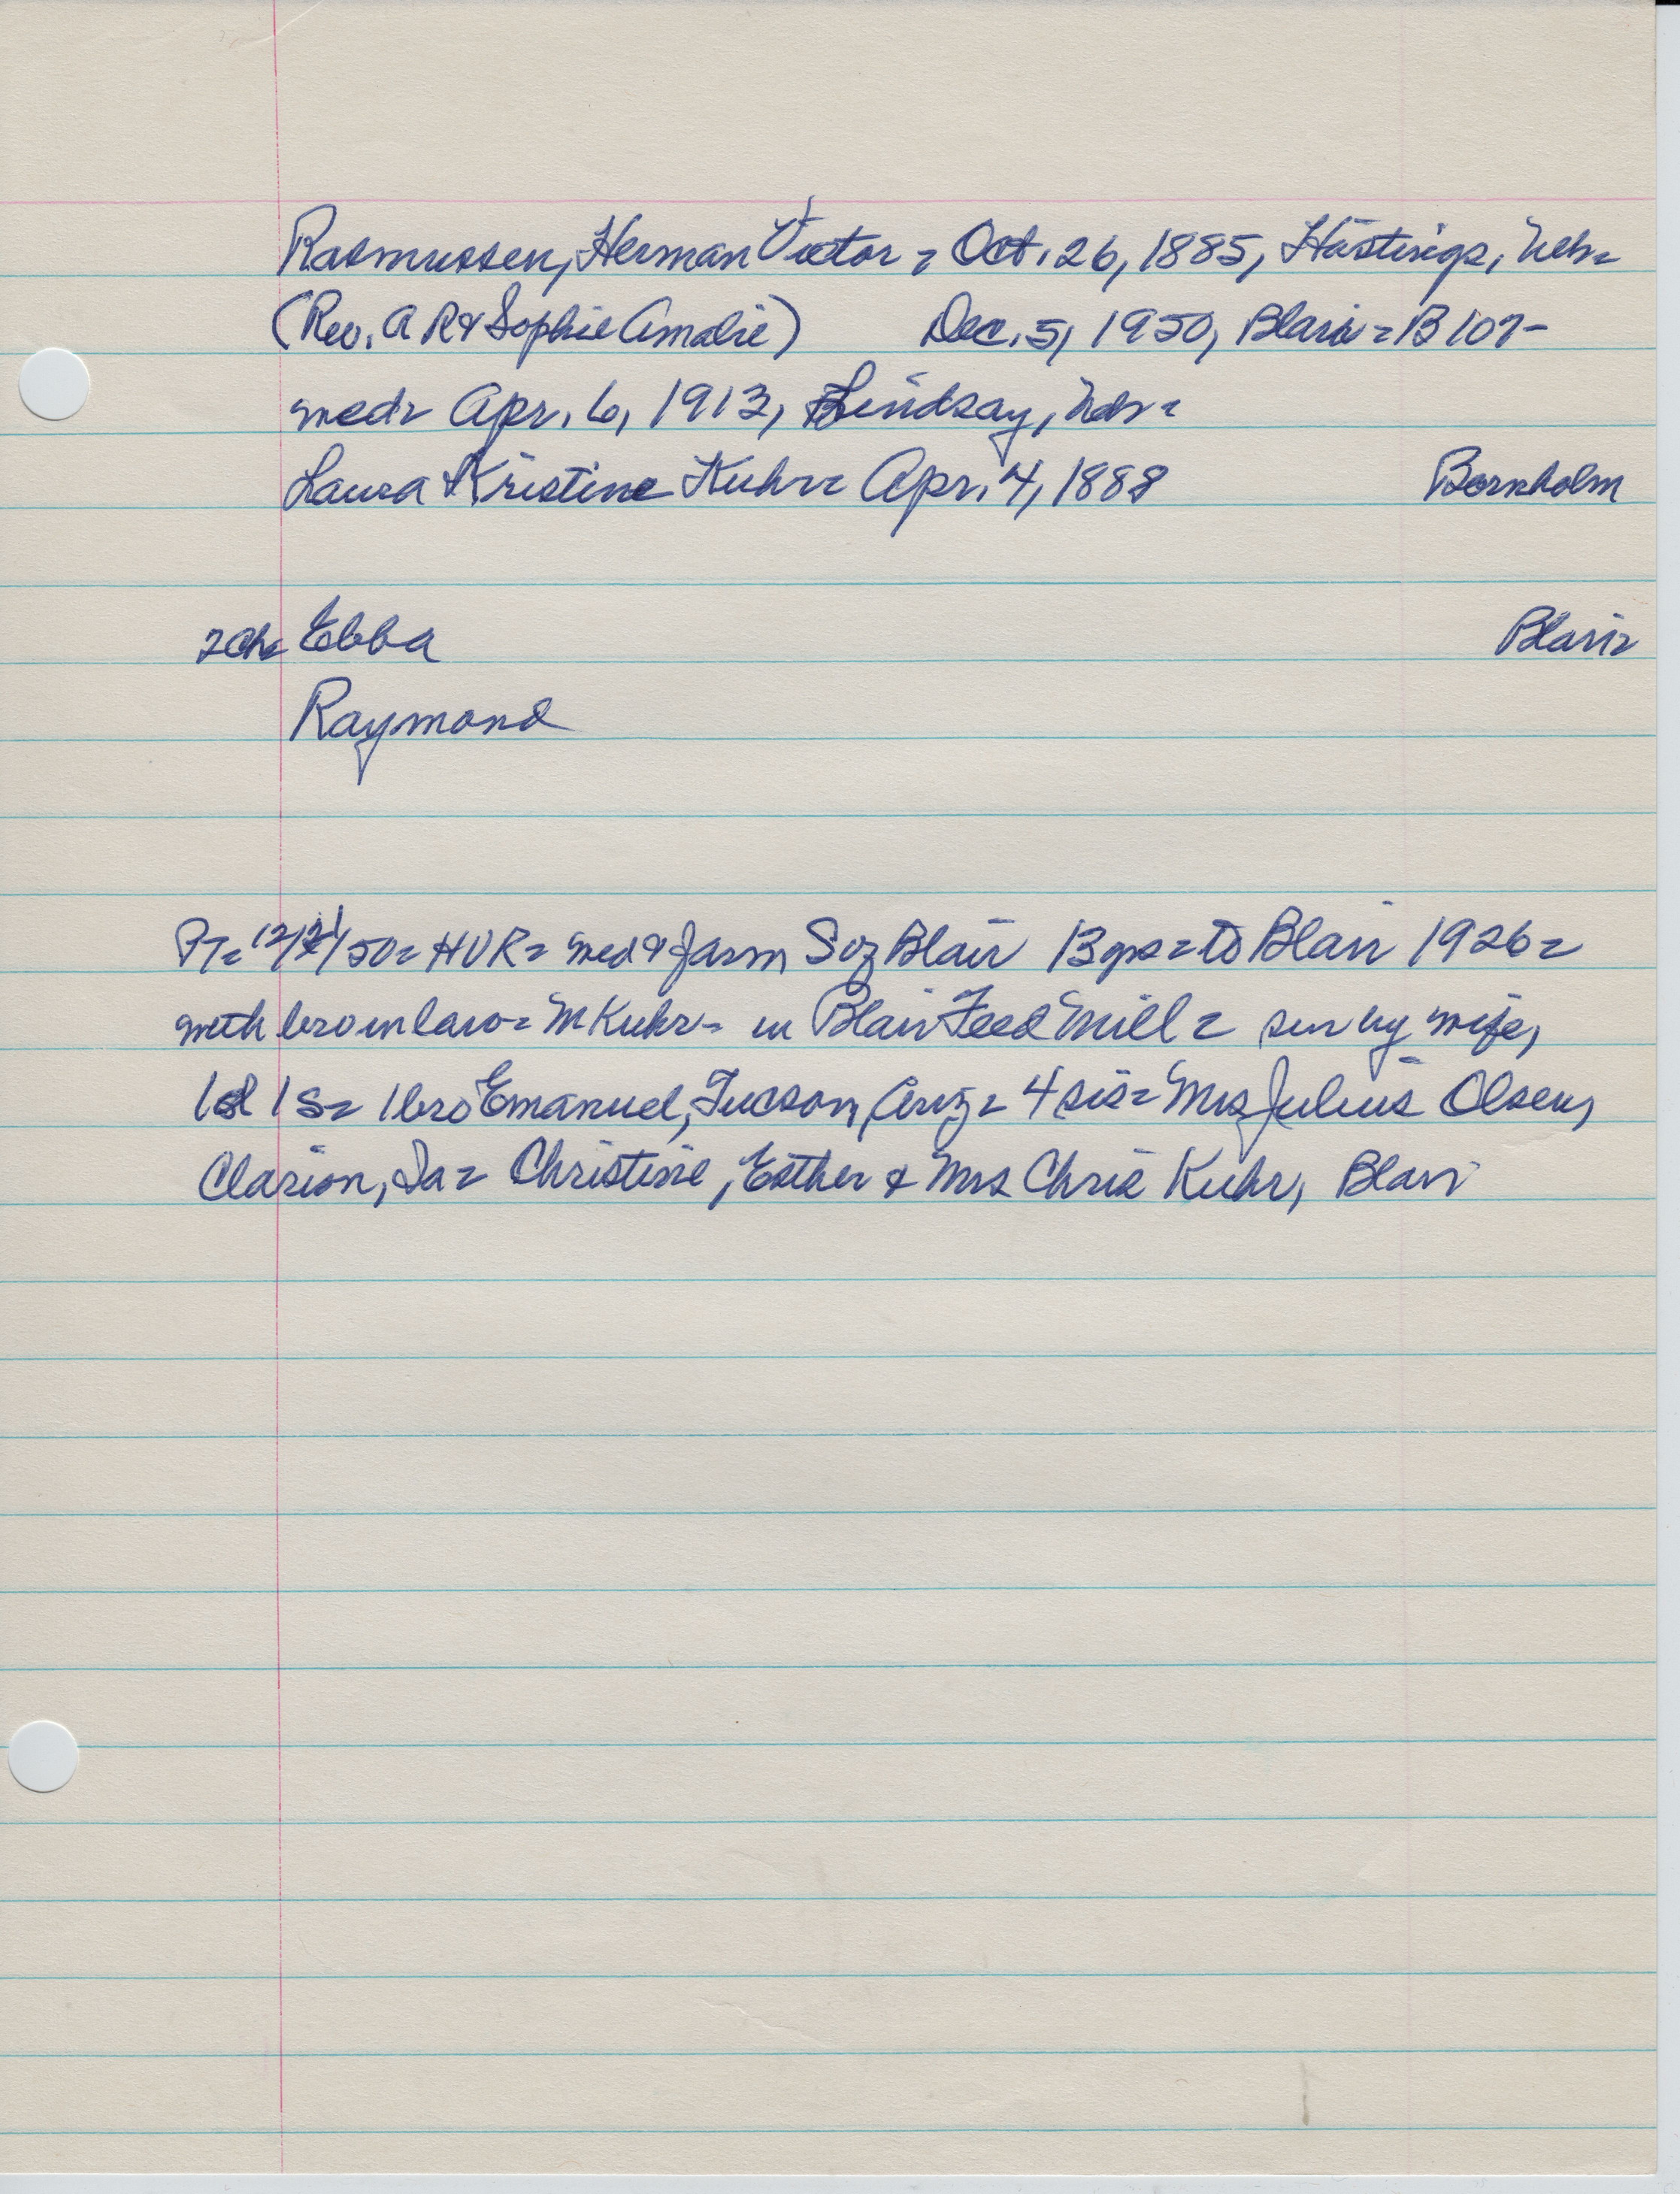 Rasmussen, Herman Victor = Oct. 26, 1885, Hastings, Neb=
(Rev. A R & Sophie Amalie) Dec. 5, 1950, Blair = B 107-
med= Apr. 6, 1913, Lindsay, Neb=
Laura Kristine Kuhr= Apr. 4, 1888 Bornholm
2 Ch= Ebba Blair=
Raymond
PT= 12/21/50= HVR= med & farm S of Blair 13 yrs = to Blair 1926=
with bro in law= M Kuhr= in Blair Feed Mill = sur by wife,
1 d 1 s= 1 bro Emanuel, Tucson, Ariz= 4 sis= Mrs Julius Olsen,
Clarion, Ia= Christine, Esther & Mrs Chris Kuhr, Blair